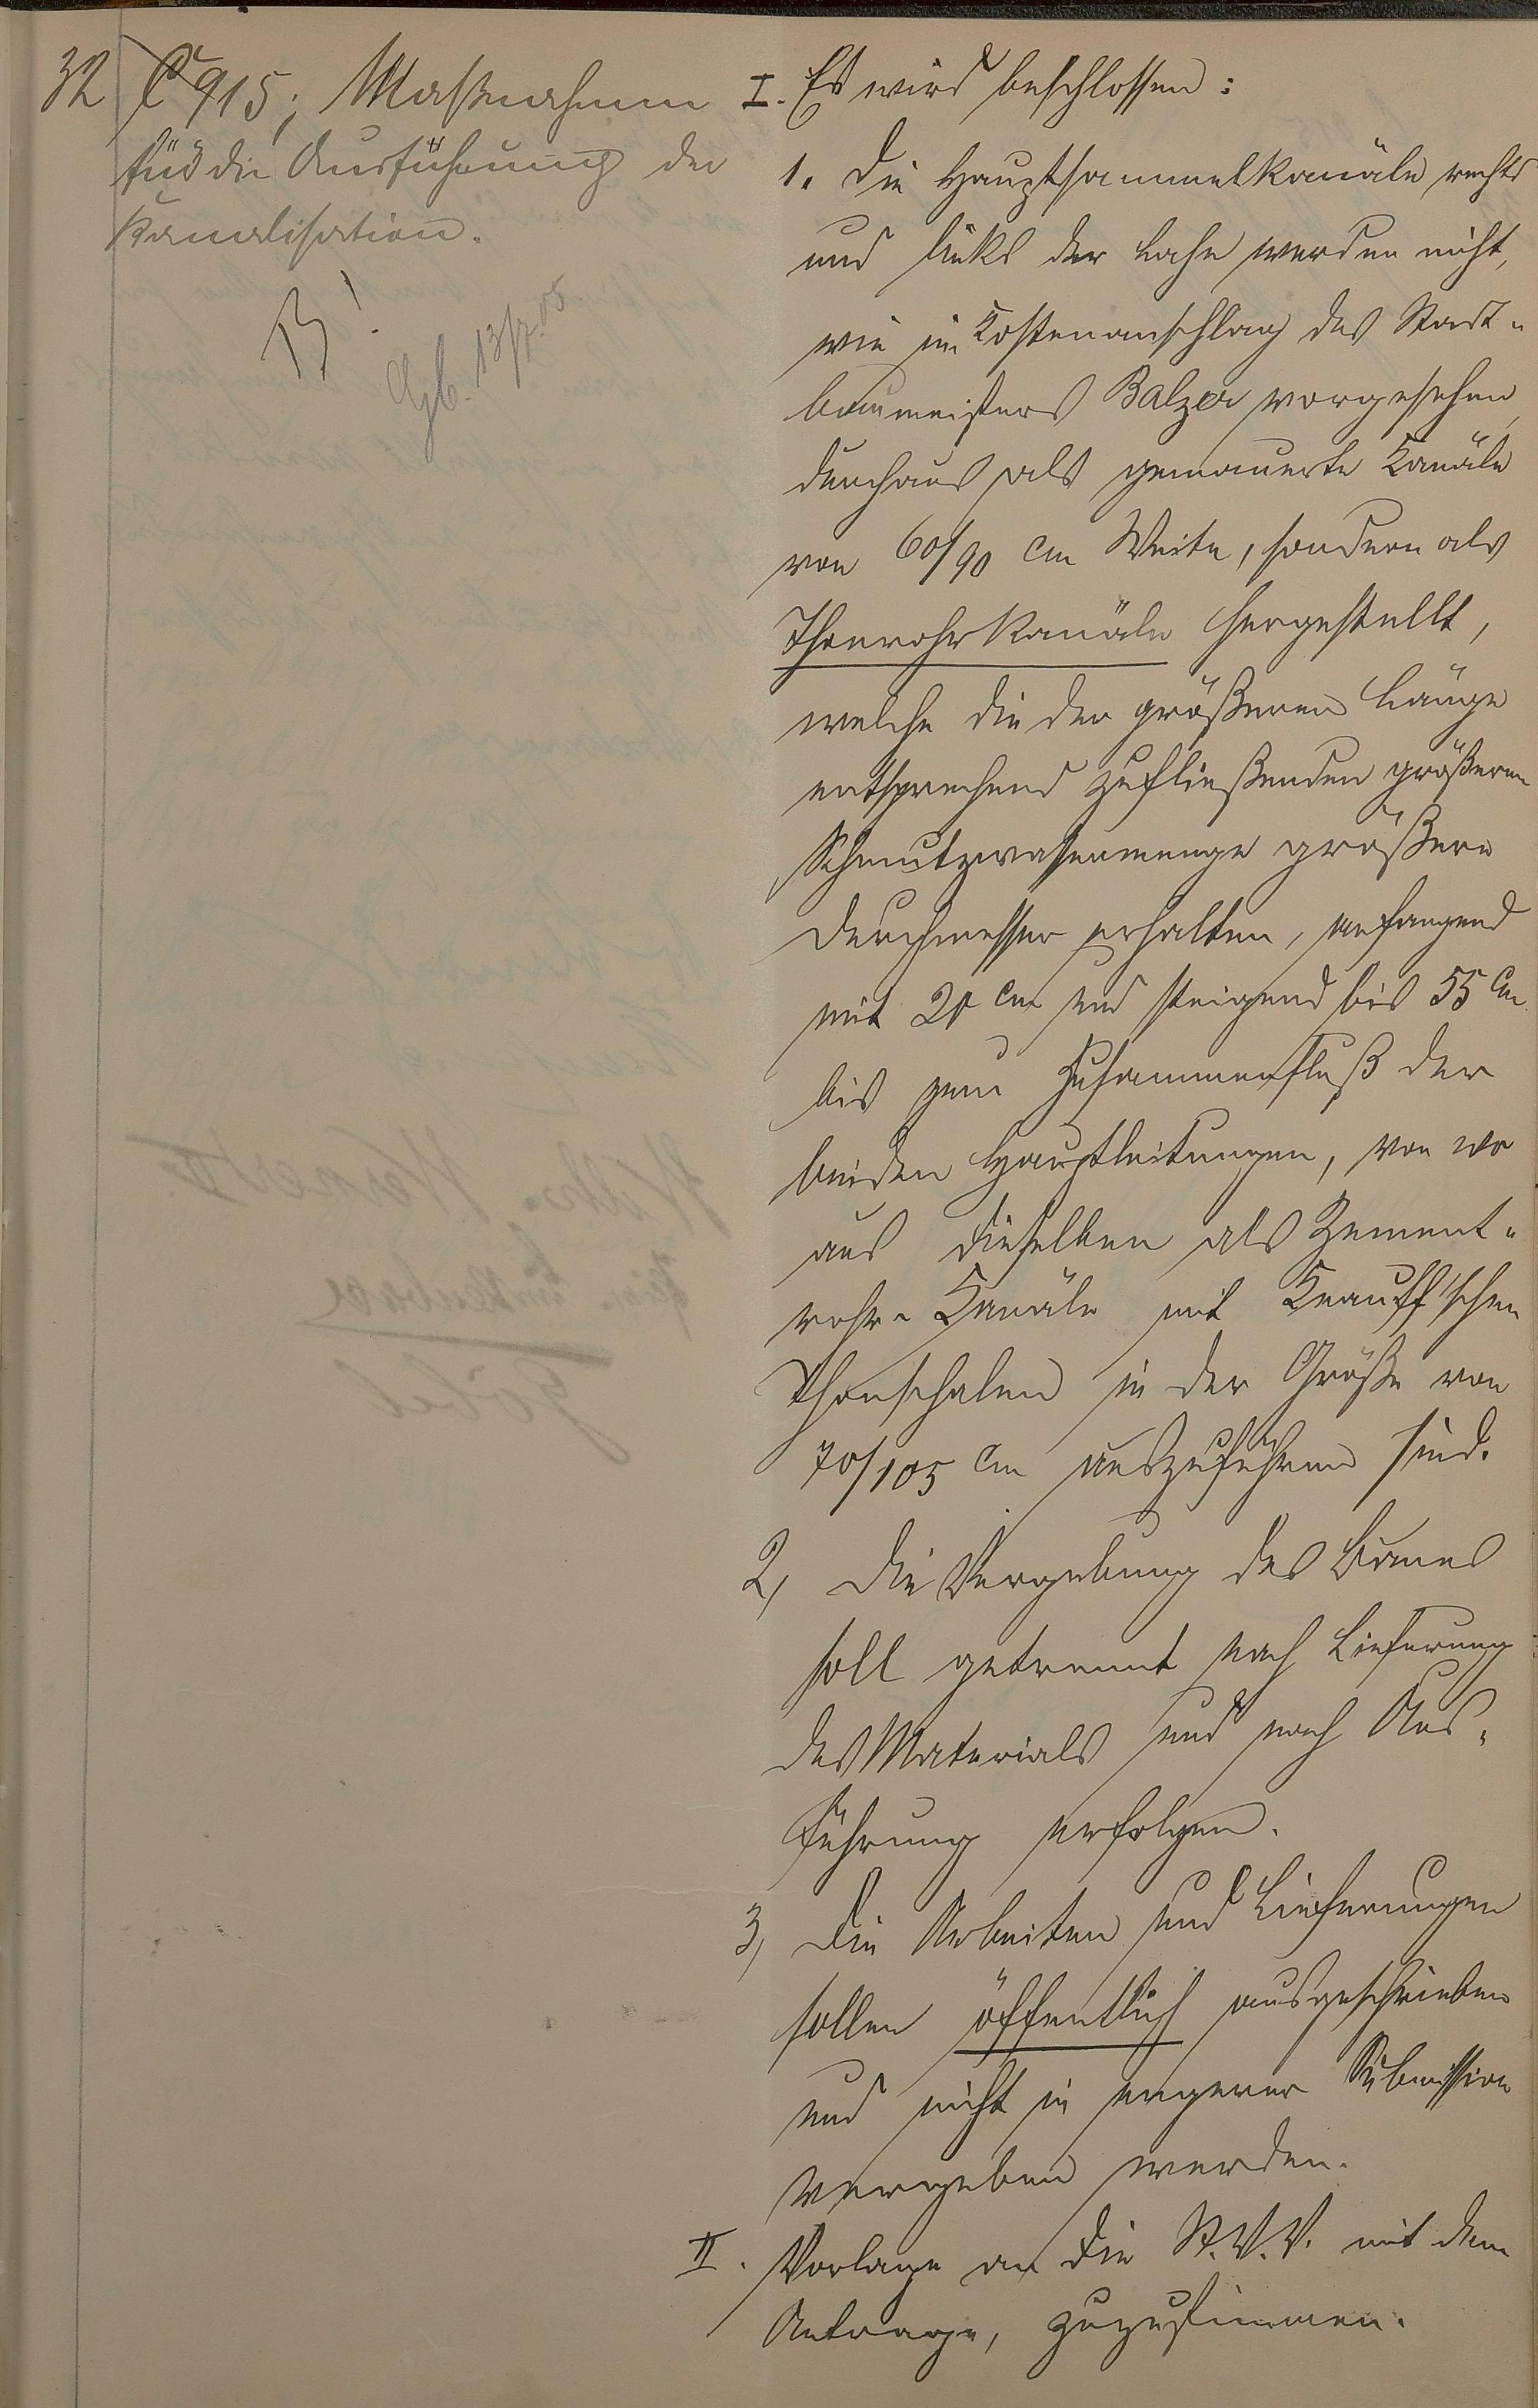 32 C 915; Maßnahmen
für die Ausführung der
Kanalisation.
B!
Agb. 13/7. 05
I. Es wird beschlossen:
1. Die Hauptsammelkanäle rechts
und links der Lahn werden nicht,
wie im Kostenanschlag des Stadt-
baumeisters Balzer vorgesehen,
durchaus als gemauerte Kanäle
von 60/90 cm Weite, sondern als
Thonrohrkanäle hergestellt,
welche die der größeren Länge
entsprechend zufließenden größeren
Schmutzwassermenge größere
Durchmesser erhalten, anfangend
mit 20 cm und steigend bis 55 cm
bis zum Zusammenfluß der
beiden Hauptleitungen, von wo
aus dieselben als Zement-
rohr-Kanäle mit Knauff'schen
Thonschalen in der Größe von
70/105 cm auszuführen sind.
2, Die Vergebung des Baues
soll getrennt nach Lieferung
des Materials und nach Aus-
führung erfolgen.
3, Die Arbeiten und Lieferungen
sollen öffentlich ausgeschrieben
und nicht in engerer Submission
vergeben werden.
II. Vorlage an die St.V.V. mit dem
Antrage, zuzustimmen.